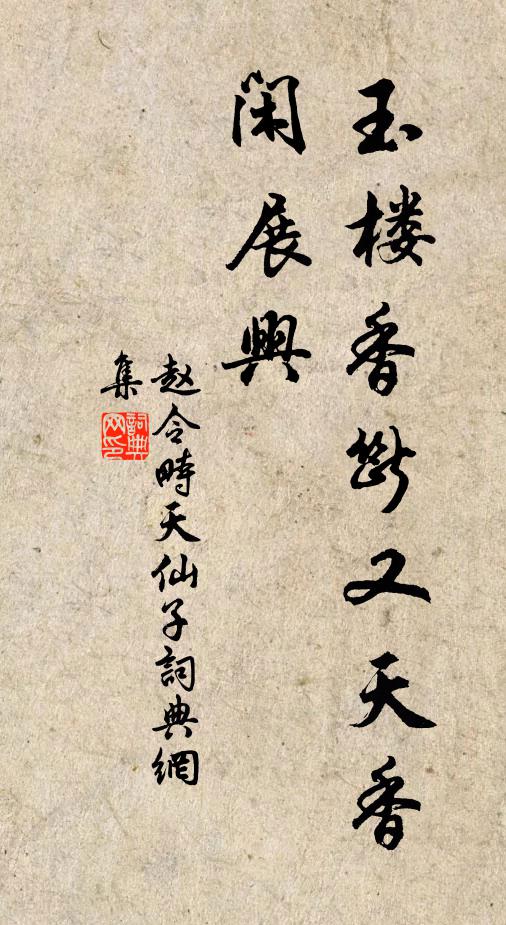 玉楼香斷又天香
閑展興
赵令畤天仙子詞典網
集
詞典
网印